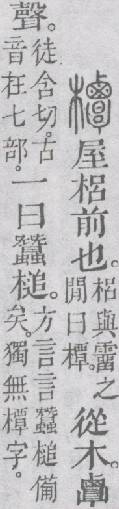 橝屋梠前也。梠與霤之閒曰橝。從木。𪉷
聲。徒含切。古音在七部。一曰蠶槌。方言言蠶槌備矣。獨無橝字。